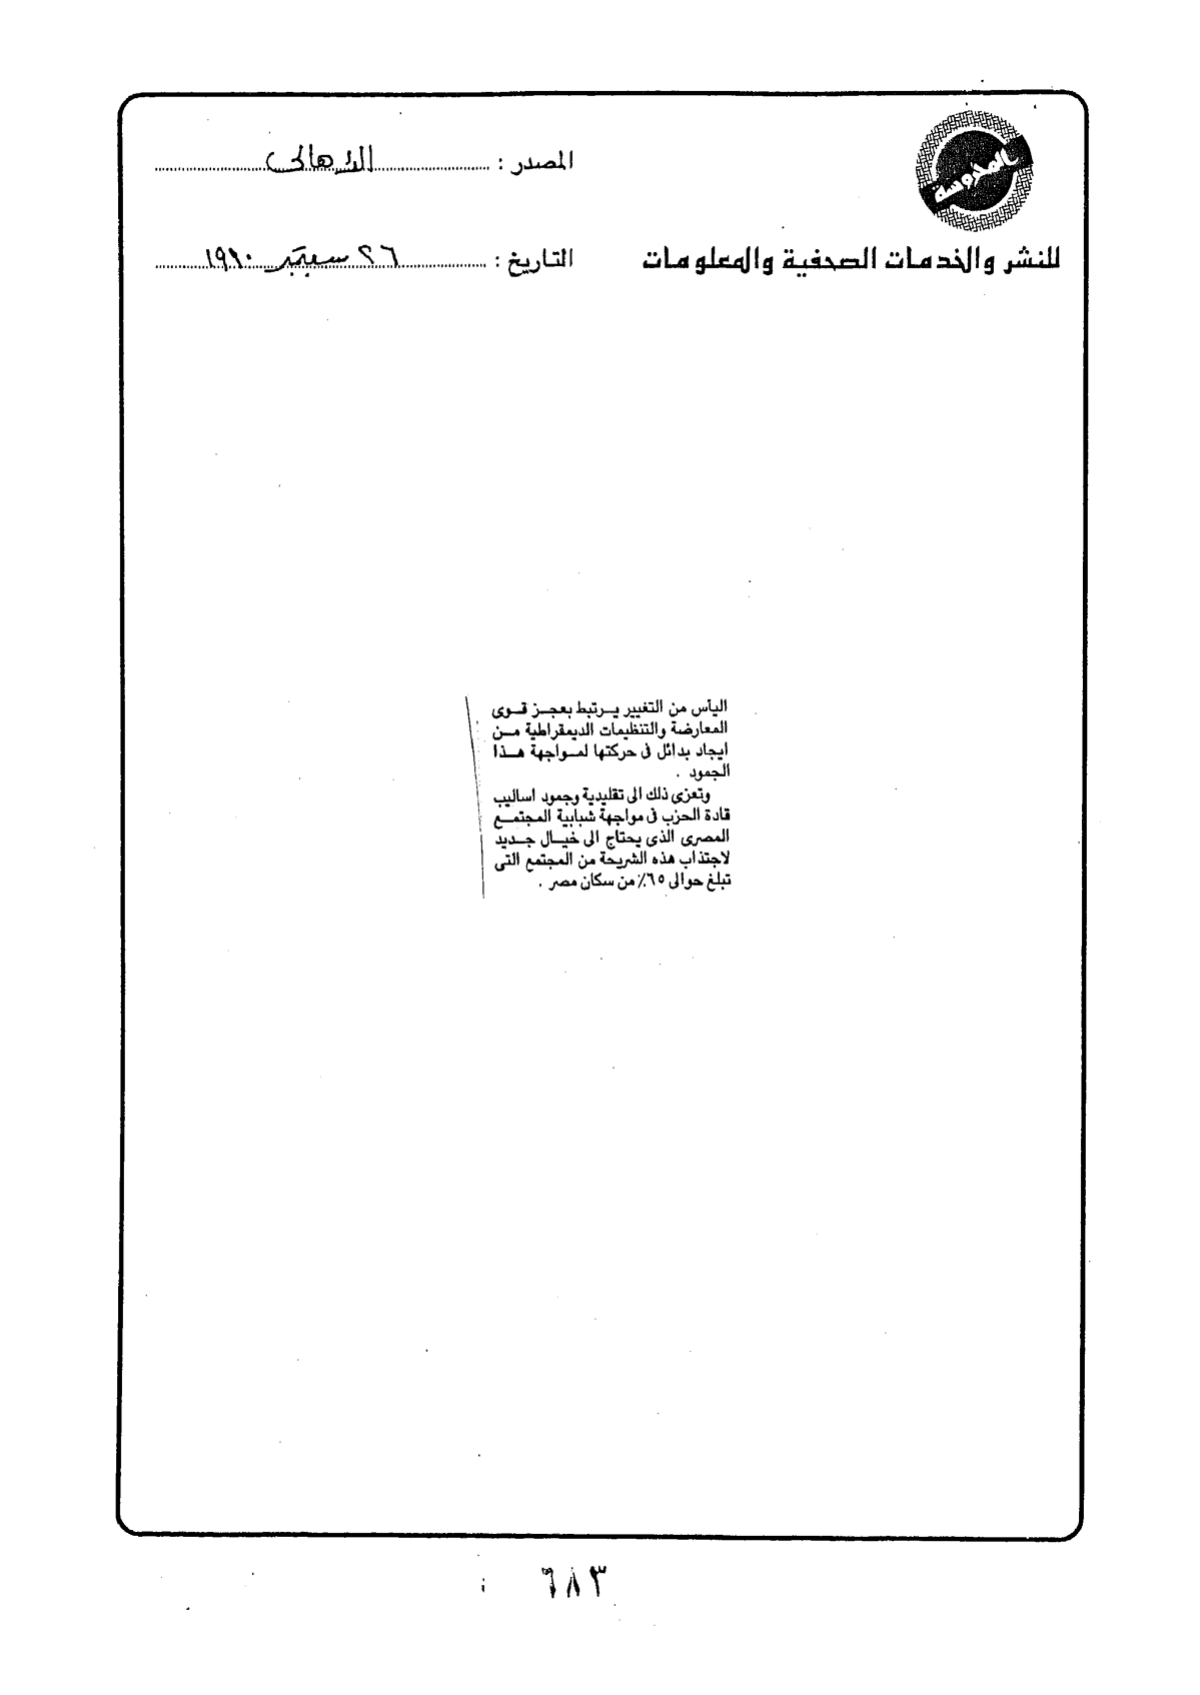 المحروسة
المصدر : الأهالى
للنشر والخدمات الصحفية والمعلومات
التاريخ : ٢٦ سبتمبر ١٩٩٠
اليأس من التغيير يــرتبط بعجــز قــوى
المعارضة والتنظيمات الديمقراطية مــن
ايجاد بدائل فى حركتها لمــواجهة هــذا
الجمود .
وتعزى ذلك الى تقليدية وجمود اساليب
قادة الحزب فى مواجهة شبابية المجتمــع
المصرى الذى يحتاج الى خيــال جــديد
لاجتذاب هذه الشريحة من المجتمع التى
تبلغ حوالى ٦٥٪ من سكان مصر .
٦٨٣